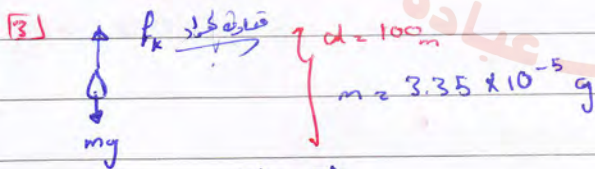 [3] fk مقاومة الهواء d = 100 m
m = 3.35 × 10⁻⁵ g
mg
عباده